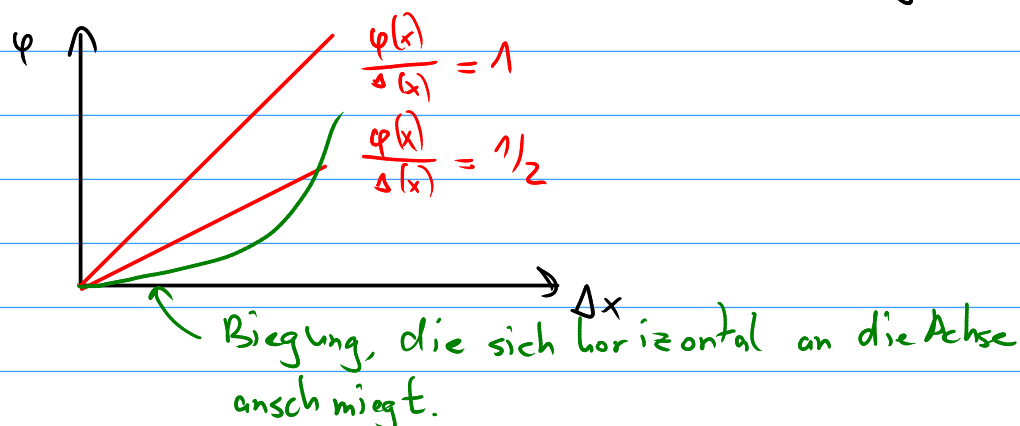 φ
φ(x)/Δ(x) = 1
φ(x)/Δ(x) = 1/2
Δx
Biegung, die sich horizontal an die Achse
anschmiegt.